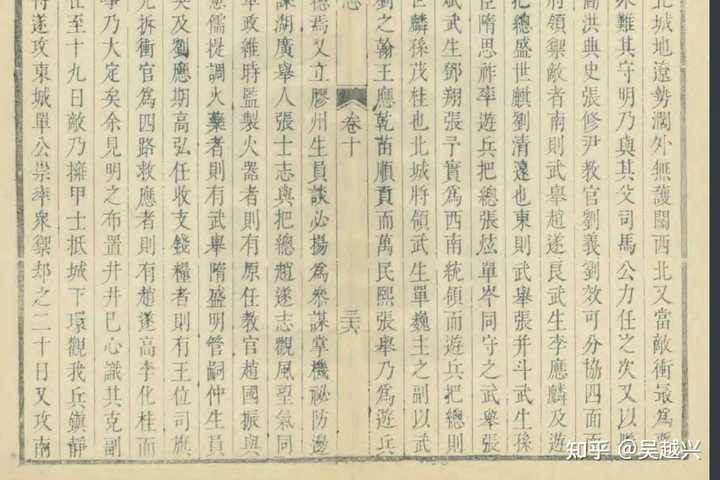 北城地遼勢濶外無護閫西北又當敵衝最為
難其守明乃與其父司馬公力任之次又以
洪典史張修尹教官劉義劉效可分協四面
領禦敵者南則武舉趙遂良武生李應麟及遊
把總盛世麒劉清遠也東則武舉張井斗武生孫
臣隋思祚率遊兵把總張炫單岑同守之武舉張
斌武生鄧翔張予實為西南統領而遊兵把總則
世麟孫茂桂也北城將領武生單魏主之副以武
劉之翰王應乾苗順貢而萬民熙張舉乃為遊兵
卷十
三六
德焉又立膠州生員談必揚為叅謀掌機祕防邊
諜湖廣舉人張士志與把總趙遂志觀風望氣同
軍政雖時監製火器者則有原任教官趙國振與
儒從調火藥者則有武舉隋盛明管嗣仲生員
美及劉應期高弘任收支錢糧者則有王位司旗
拆衝官為四路救應者則有趙遂高李化桂而
事乃大定矣余見明之布置井井已心識其克副
至十九日敵乃擁甲士抵城下環觀我兵鎮靜
待遂攻東城單公崇率衆禦却之二十日又攻南
知乎 @吴越兴